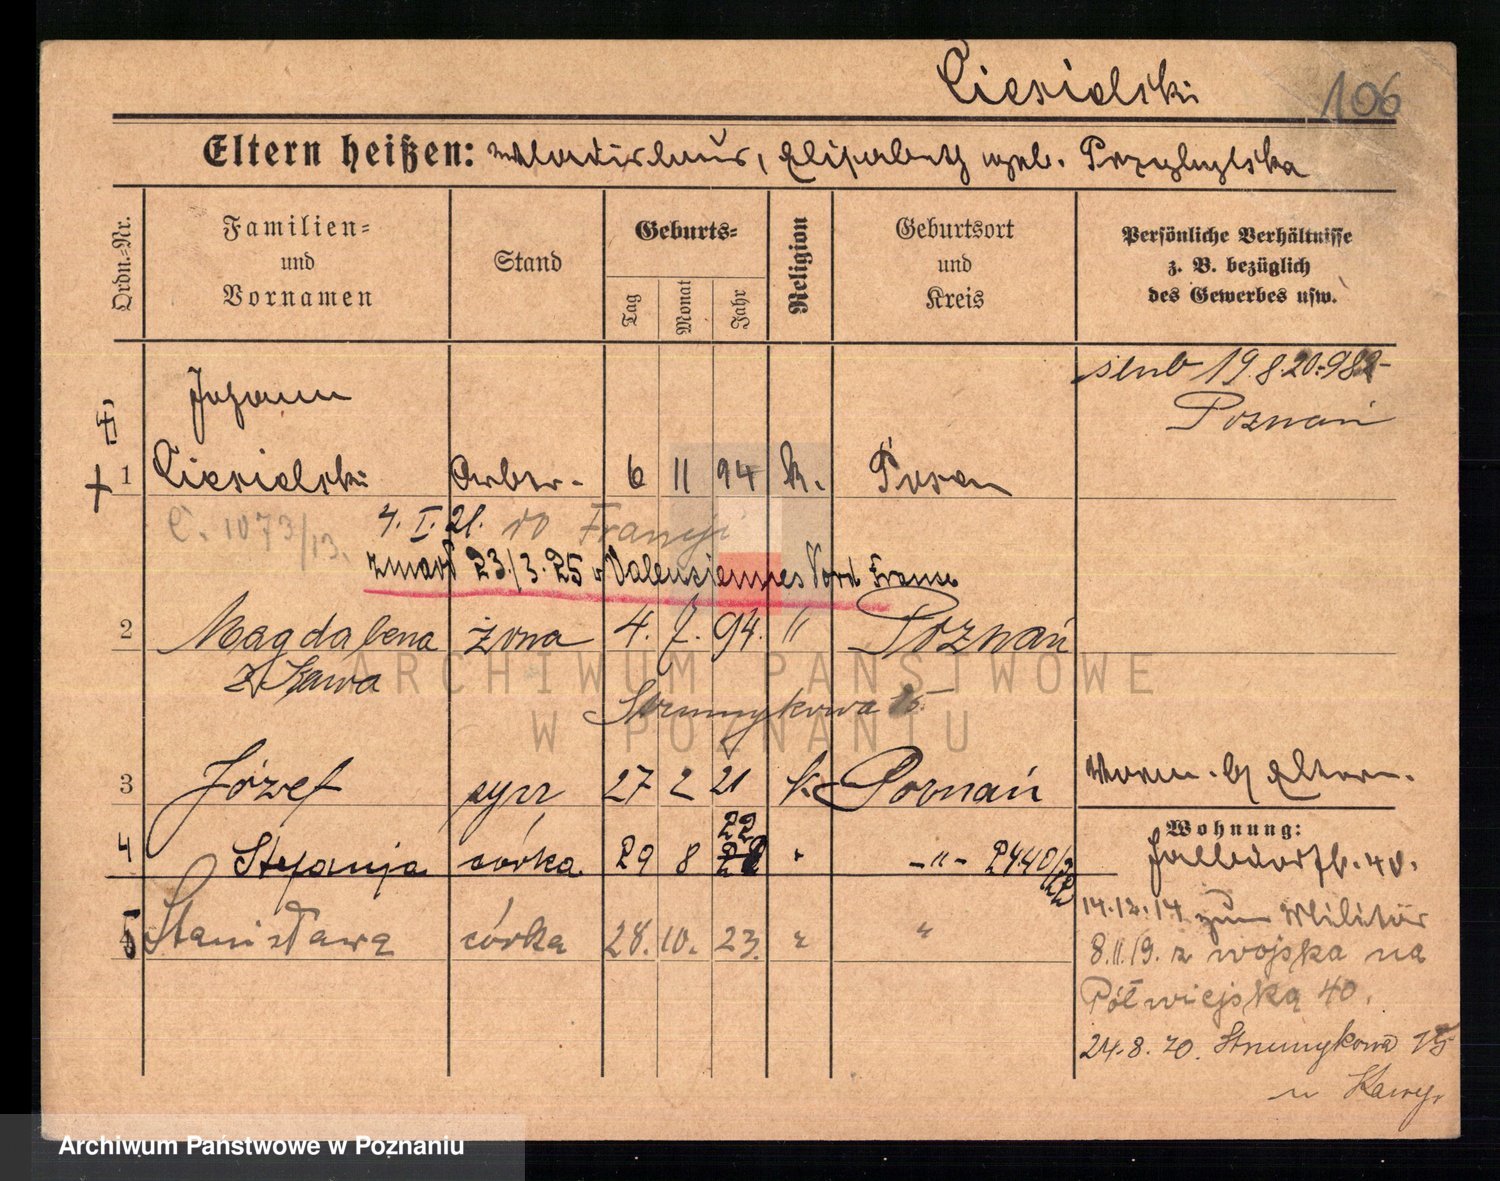 Ciesielski 106
Eltern heißen: Wladislaus, Elisabeth geb. Przybylska
Ordn.-Nr.
Familien-
und
Vornamen
Stand
Geburts-
Tag
Monat
Jahr
Religion
Geburtsort
und
Kreis
Persönliche Verhältnisse
z. B. bezüglich
des Gewerbes usw.
ślub 19.8.20.-982-
Poznań
Johann
1 Ciesielski Arbtr. 6 11 94 k. Posen
C. 1073/13. 4. I. 21. do Francji
zmarł 23./3. 25 w Valenciennes Nord France
2 Magdalena żona 4. 7. 94. " Poznań
z Kawa
Strumykowa 15
3 Józef syn 27 2 21 k. Poznań
Vorm. b/ Eltern.
22
4 Stefanja córka 29 8 " -"- 2440/22
5 Stanisława córka 28. 10. 23. " "
Wohnung:
Halbdorfstr. 40.
14.12.14 zum Militär
8.11.19. z wojska na
Półwiejską 40.
24.8.20. Strumykowa 15
u Kawy
ARCHIWUM PAŃSTWOWE
W POZNANIU
Archiwum Państwowe w Poznaniu